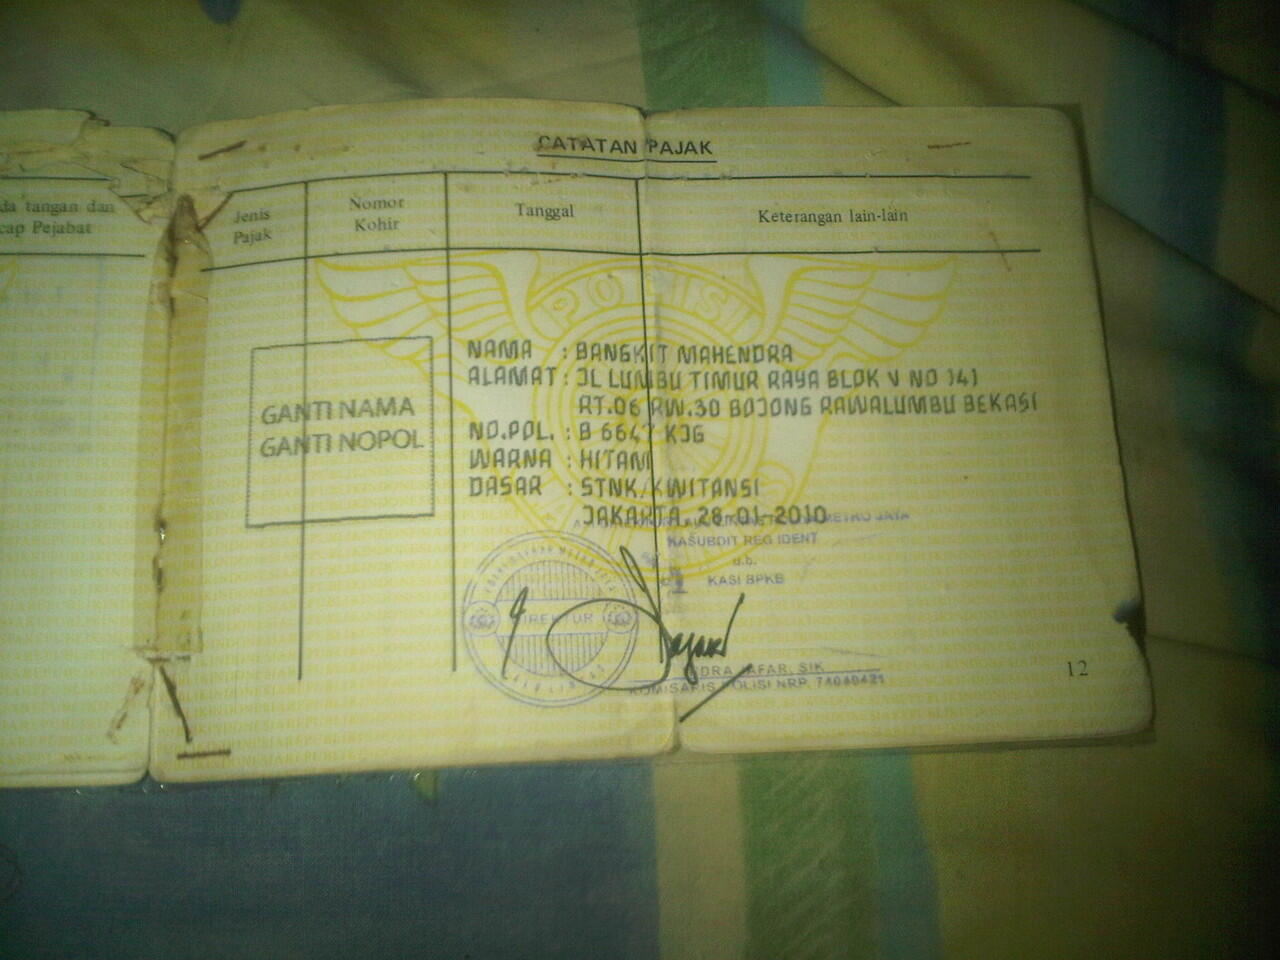 da tangan dan
cap Pejabat
CATATAN PAJAK
Jenis
Pajak
Nomor
Kohir
Tanggal
Keterangan lain-lain
POLISI
GANTI NAMA
GANTI NOPOL
NAMA : BANGKIT MAHENDRA
ALAMAT : JL LUMBU TIMUR RAYA BLOK V NO 141
RT.06 RW.30 BOJONG RAWALUMBU BEKASI
NO.POL. : B 6647 KJG
WARNA : HITAM
DASAR : STNK/KWITANSI
JAKARTA 28-01-2010
METRO JAYA
KASUBDIT REG IDENT
u.b.
KASI BPKB
DIREKTUR
INDRA JAFAR, SIK
KOMISARIS POLISI NRP.
12